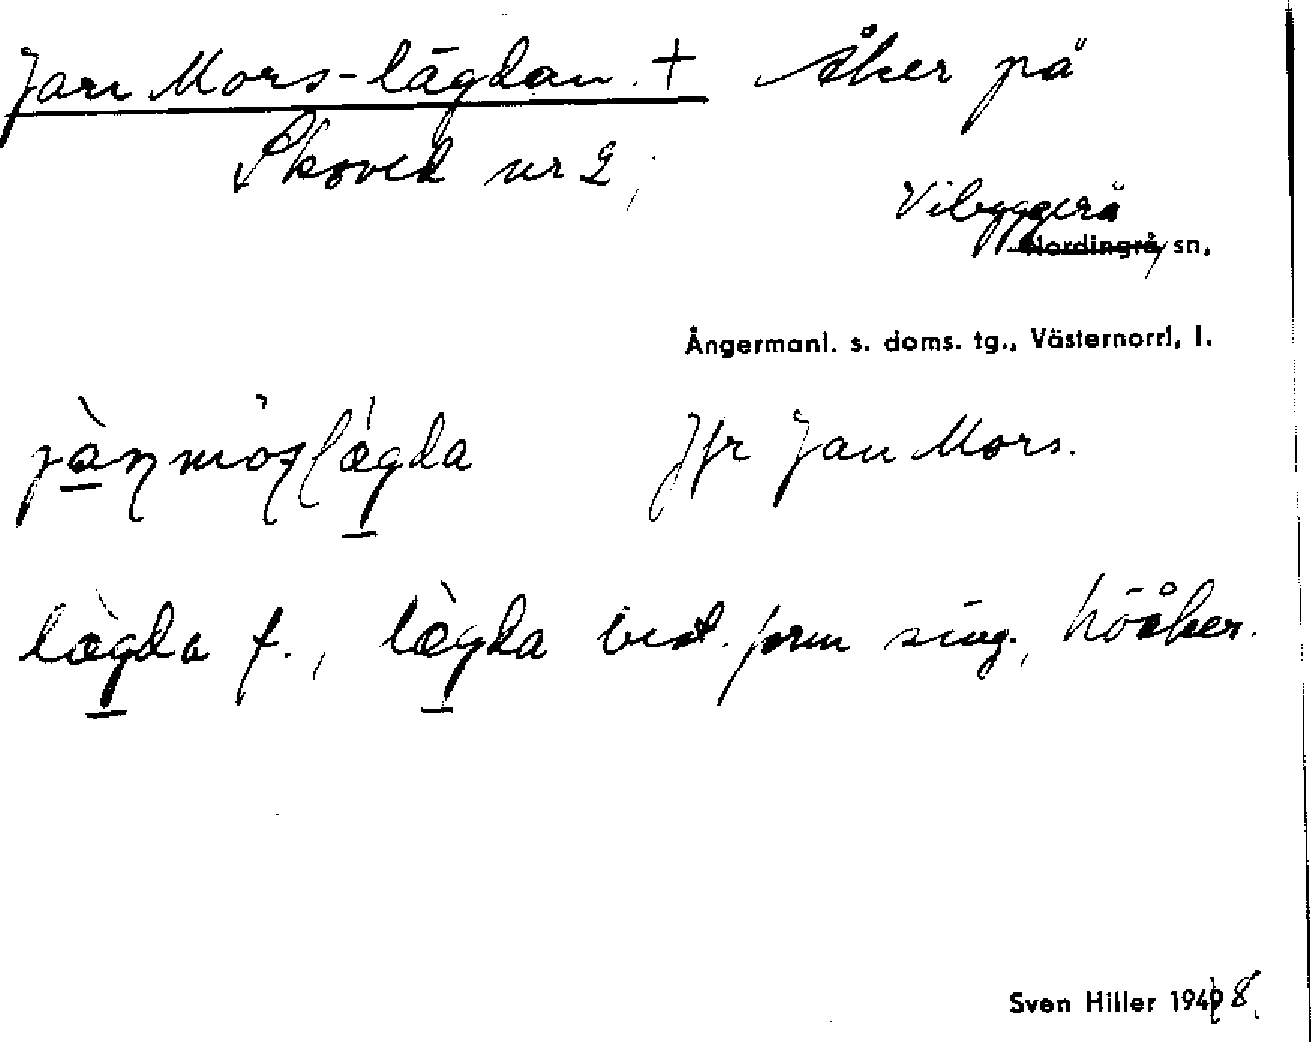 Jan Mors-lägdan. + Åker på
Skoved nr 2;
Vibyggerå
Nordingrå, sn,
Ångermanl. s. doms. tg., Västernorrl. l.
Jfr Jan Mors.
lægda f., lægda best. form sing., höåker.
Sven Hiller 1948.